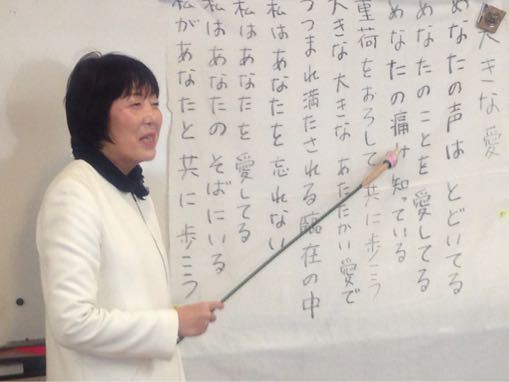 大きな愛
あなたの声は とどいてる
あなたのことを愛してる
あなたの痛み 知っている
重荷をおろして 共に歩こう
大きな大きな あたたかい愛で
つつまれ満たされる臨在の中
私はあなたを忘れない
私はあなたを 愛してる
私はあなたの そばにいる
私があなたと 共に歩こう